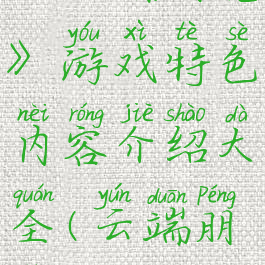 yóu xì tè sè
》游戏特色
nèi róng jiè shào dà
内容介绍大
quán yún duān Péng
全(云端朋